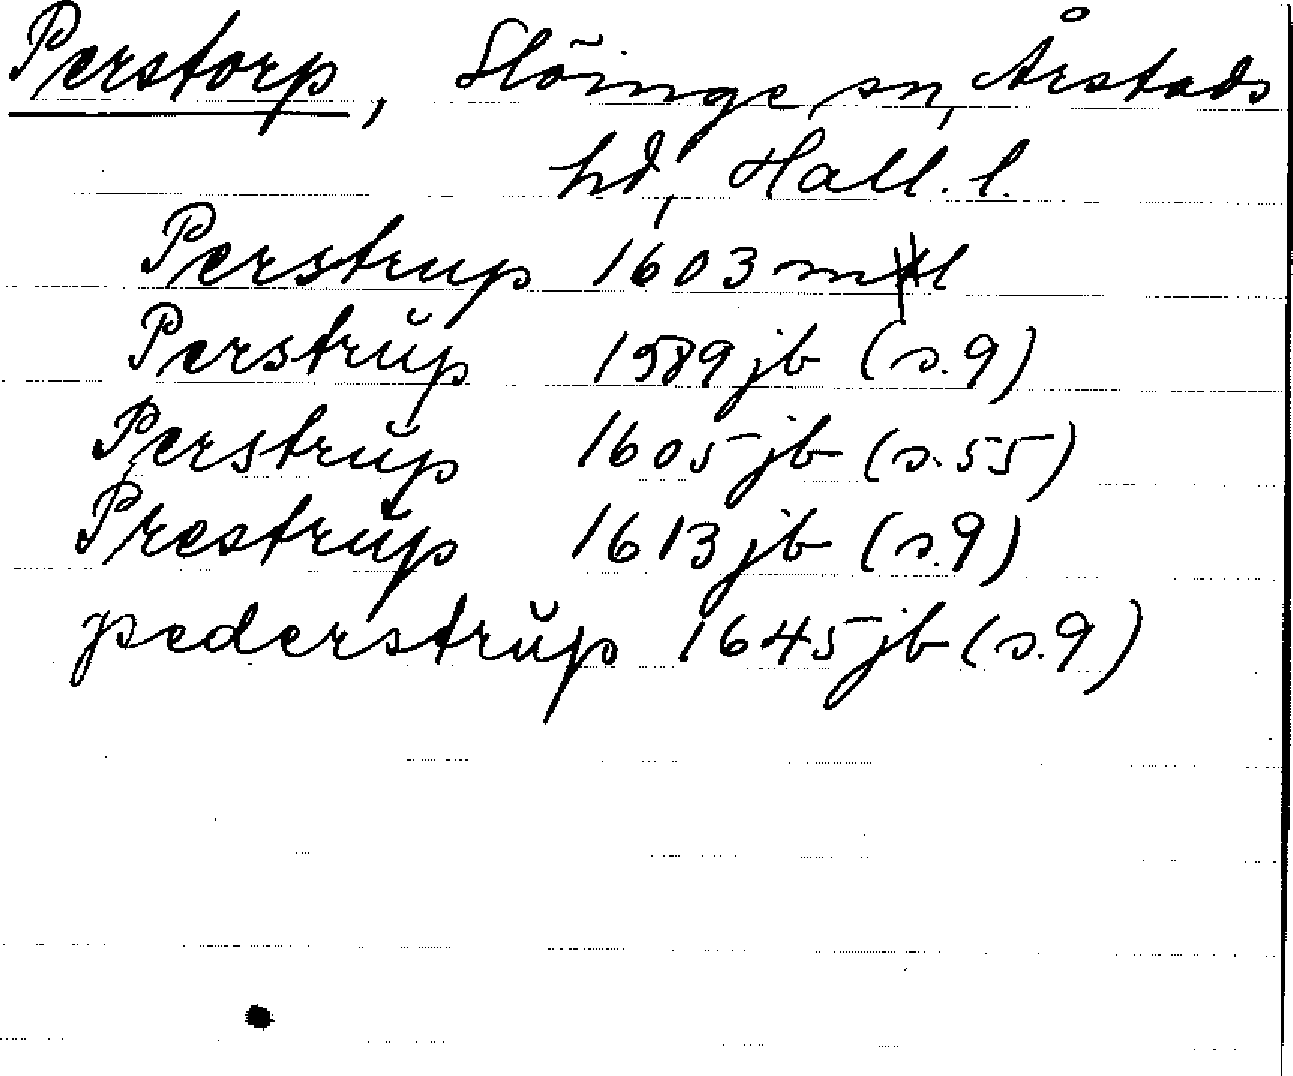 Perstorp, Slöinge sn, Årstads
hd, Hall. l.
Perstrup 1603 mtl
Perstrŭp 1589 jb (s.9)
Perstrŭp 1605 jb (s.55)
Prestrŭp 1613 jb (s.9)
pederstrŭp 1645 jb (s.9)